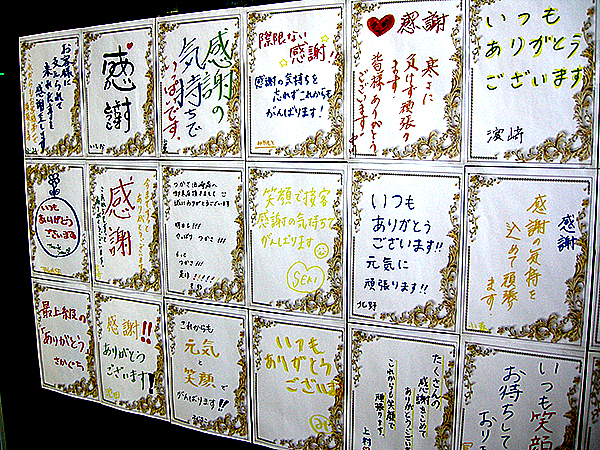 感謝の
気持ちで
いっぱいです。
感謝
際限ない
感謝!
感謝の気持ちを
忘れずこれからも
がんばります!
感謝
寒さに
負けず頑張り
ます
皆様ありがとう
ございます
いつも
ありがとう
ございます
濱崎
いつも
ありがとう
ございます
感謝
笑顔で接客
感謝の気持ちで
がんばります
SEKI
いつも
ありがとう
ございます!!
元気に
頑張ります!!
北野
感謝
感謝の気持を
込めて頑張
ます
最上級の
「ありがとう」
さかぐち
感謝!!
ありがとう
ございます!
これからも
元気
と
笑顔で
がんばります!!
いつも
ありがとう
ございま
たくさんの
感謝をこめて
ありがとうござい
これからも笑顔で
頑張ります。
上村
いつも笑顔
お待ちして
おり